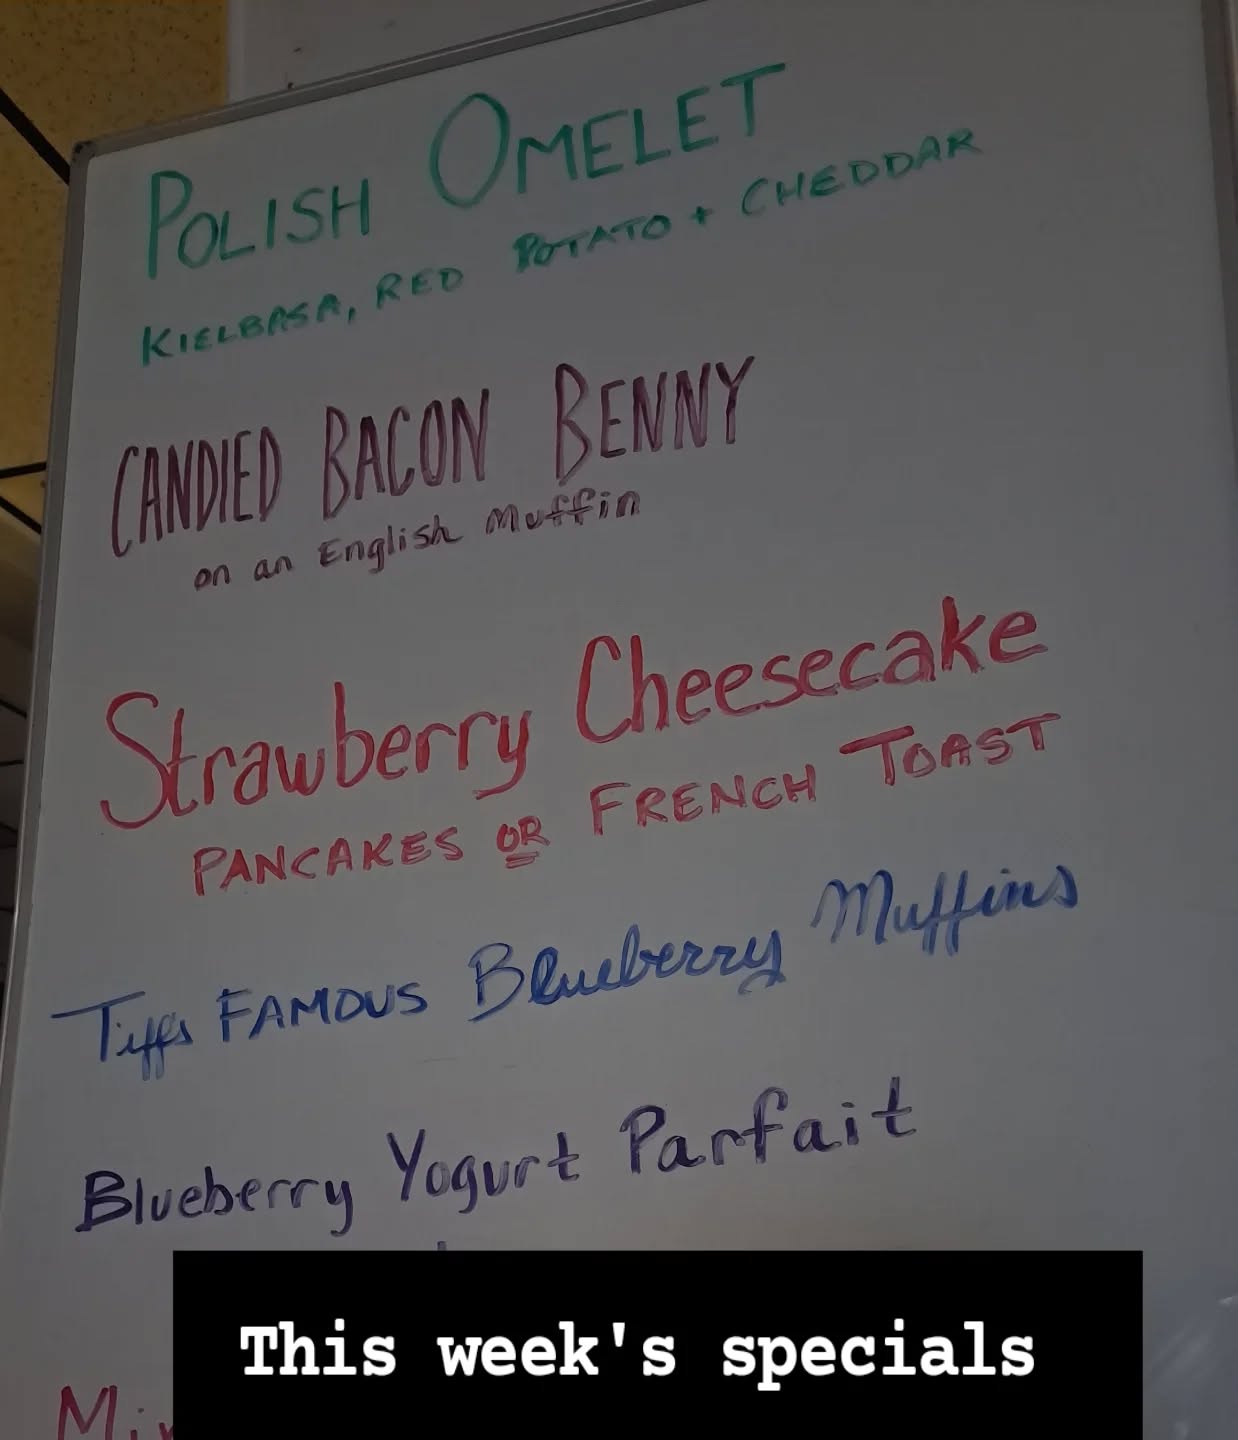 POLISH OMELET
KIELBASA, RED POTATO + CHEDDAR
CANDIED BACON BENNY
on an English Muffin
Strawberry Cheesecake
PANCAKES OR FRENCH TOAST
Tiffs FAMOUS Blueberry Muffins
Blueberry Yogurt Parfait
This week's specials